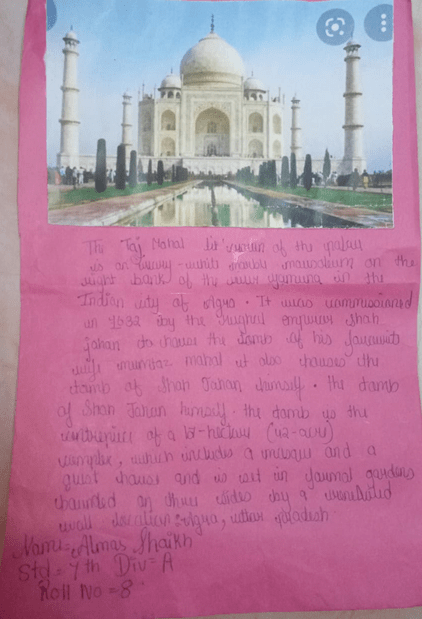 The Taj Mahal lit 'crown of the palace
is an ivory-white marble mausoleum on the
right bank of the river yamuna in the
Indian city of Agra. It was commissioned
in 1632 by the Mughal emperor Shah
Jahan to house the tomb of his favourite
wife mumtaz mahal it also houses the
tomb of Shah Jahan himself. the tomb
of Shah Jahan himself. the tomb is the
centrepiece of a 17-hectare (42-acre)
complex, which includes a mosque and a
guest house and is set in formal gardens
bounded on three sides by a crenellated
wall location:- Agra, uttar pradesh
Name = Almas Shaikh
Std = 7th Div = A
Roll No = 8